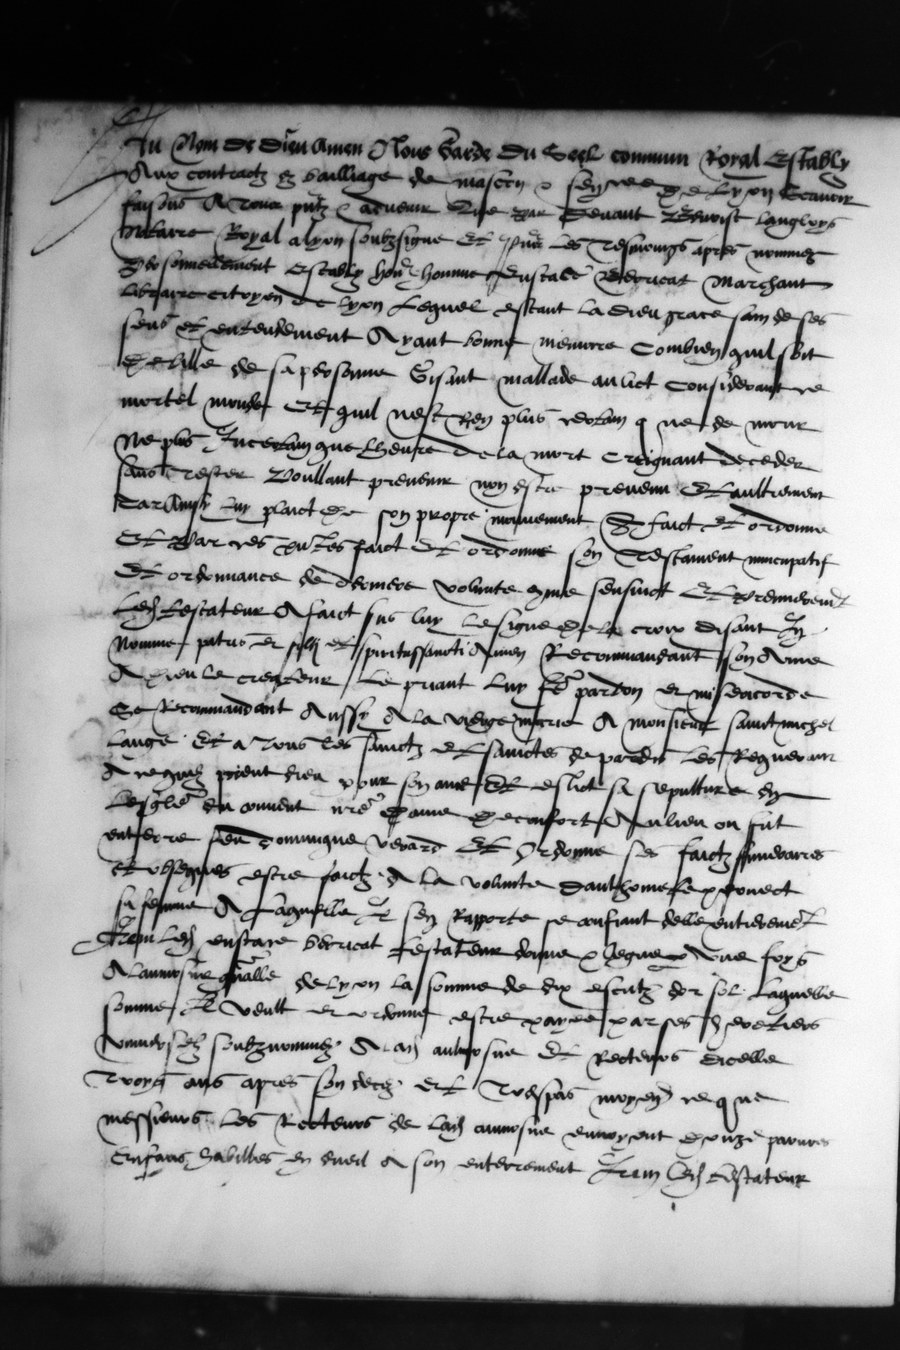 Au Nom de Dieu Amen Nous Garde du Seel commun Royal Estably
Aux contractz es bailliage de mascon & sen~cee de Lyon Scavoir
faisons A tous pntz & advenir Que par devant Benoist Langloys
Notaire Royal a lyon soubzsigne Et pns les Tesmoings apres nommez
personnellement estably hon~e homme Eustace Marchant
Libraire citoyen de lyon Lequel estant la dieu grace sain de ses
sens et entendement Ayant bonne memoire Combien quil soit
debille de sa personne Gisant mallade au lict Considerant ce
mortel monde Et quil nest Rien plus certain que de mourir
Ne plus Incertain que lheure de la mort Creignant deceder
sans tester Voullant prevenir non estre prevenu Et aultrement
Car Ainsy luy plaict de son propre mouvement A faict Et ordonne
Et par ces pntes faict Et ordonne son Testament nuncupatif
Et ordonnance de derniere volunte come sensuict Et premierement
Led testateur A faict sus luy le signe de la croix disant In
Nomine patris et filij et spiritussancti Amen Recommandant son Ame
A Dieu le createur Le priant luy fe pardon et misericorde
Se Recommandant Aussy A la vierge marie A monsieur sainct michel
Lange Et a tous les sainctz Et sainctes de paradis les Requerant
A ce quilz prient dieu pour son ame Et eslict sa sepulture En
Leglise du couvent nre Dame De confort Au lieu ou fut
enterre feu dominique verard Et Ordonne ses faictz funeraires
et obseques estre faictz A la volunte
sa femme A laquelle Il sen Rapporte se confiant delle entierement
Item Led eustace testateur donne & legue Une foys
A laumosne gnalle de lyon la somme de dix escutz dor sol Laquelle
somme Il veult et ordonne estre payee par ses heretiers
universelz soubznommez A lad aulmosne Et Recteurs dicelle
troys ans apres son deces Et Trespas moyen ce que
messieurs les Recteurs de lad aumosne envoyent Douze pauvres
Enfans habilles en dueil A son enterrement Item led testateur